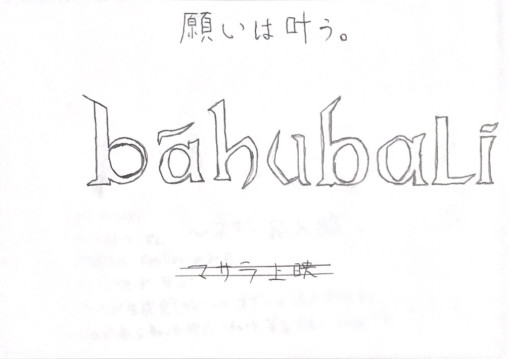 願いは叶う。
bāhubaLi
マサラ上映